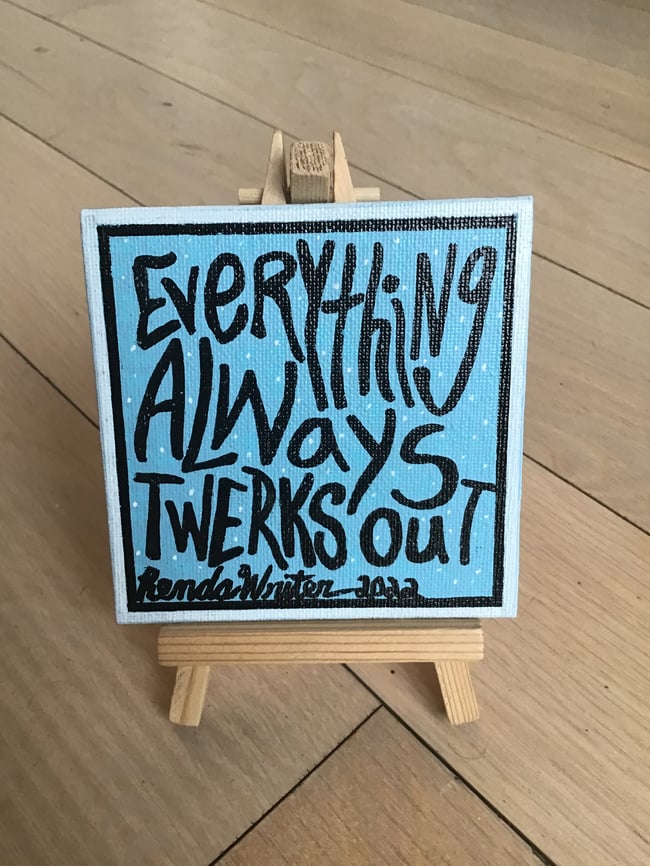 EVeRYthiNg
ALWays
TWERKS ouT
Renda Writer 2022